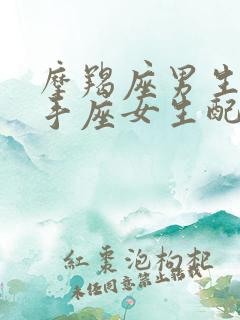 摩羯座男生
手座女生配
紅棗泡枸杞
未任同意禁止转载